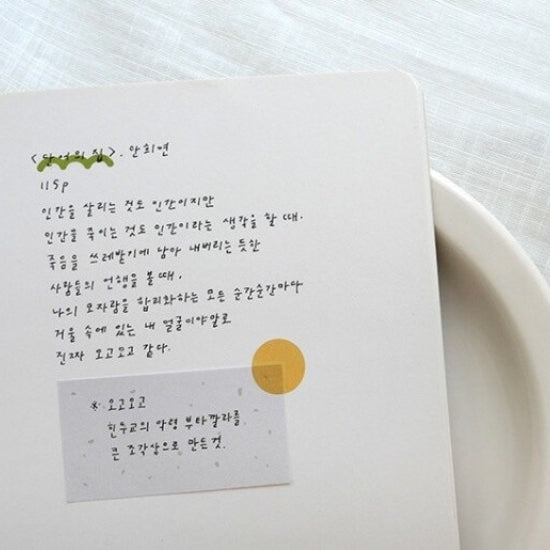 <단어의 집>. 안희연
115p
인간을 살리는 것도 인간이지만
인간을 죽이는 것도 인간이라는 생각을 할 때.
죽음을 쓰레받기에 담아 내버리는 듯한
사람들의 언행을 볼 때,
나의 모자람을 합리화하는 모든 순간순간마다
거울 속에 있는 내 얼굴이야말로
진짜 오고오고 같다.
※ 오고오고
힌두교의 악령 부타깔라를
큰 조각상으로 만든 것.